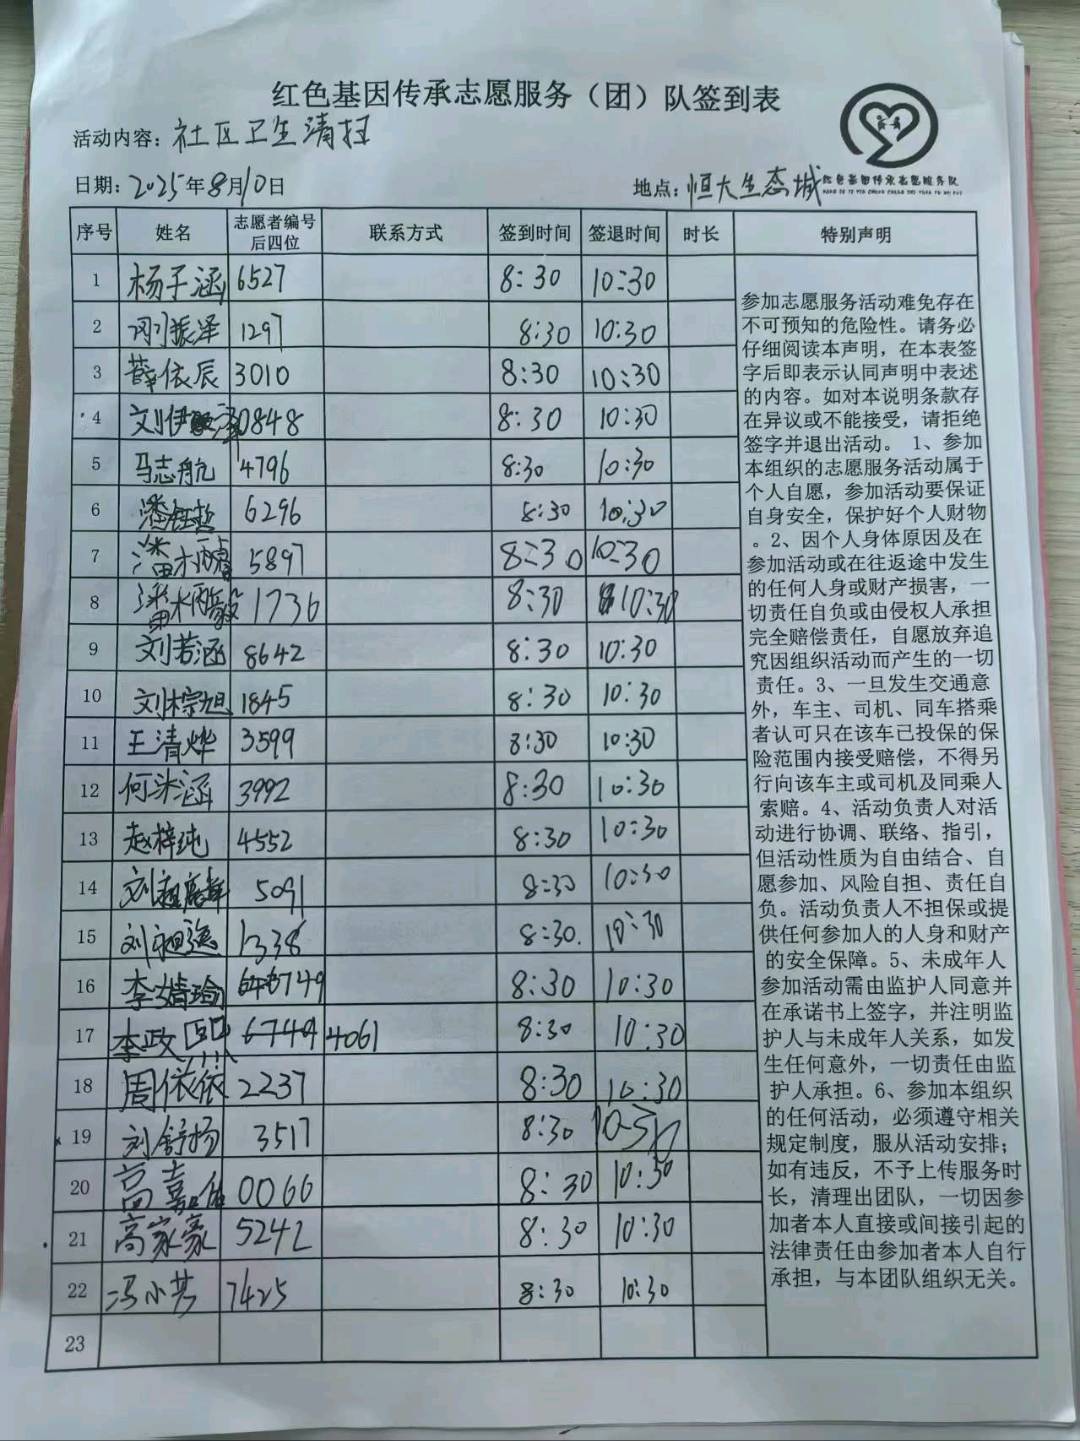 红色基因传承志愿服务（团）队签到表
活动内容：社区卫生清扫
日期：2025年8月10日 地点：恒大生态城
红色基因传承志愿服务队
序号 姓名 志愿者编号后四位 联系方式 签到时间 签退时间 时长 特别声明
1 杨子涵 6527 8:30 10:30
2 刘振泽 1297 8:30 10:30
3 薛依辰 3010 8:30 10:30
4 刘伊 0848 8:30 10:30
5 马志航 4796 8:30 10:30
6 潘钰哲 6296 8:30 10:30
7 潘柄睿 5897 8:30 10:30
8 潘柄毅 1736 8:30 10:30
9 刘若涵 8642 8:30 10:30
10 刘棕旭 1845 8:30 10:30
11 王清烨 3599 8:30 10:30
12 何沐涵 3992 8:30 10:30
13 赵梓纯 4552 8:30 10:30
14 刘 5091 8:30 10:30
15 刘昶逸 1338 8:30 10:30
16 李婧瑜 6749 8:30 10:30
17 李政熙 6749 4061 8:30 10:30
18 周依依 2237 8:30 10:30
19 刘舒扬 3517 8:30
20 高嘉 0066 8:30 10:30
21 高家豪 5242 8:30 10:30
22 冯小芸 7425 8:30 10:30
23
参加志愿服务活动难免存在
不可预知的危险性。请务必
仔细阅读本声明，在本表签
字后即表示认同声明中表述
的内容。如对本说明条款存
在异议或不能接受，请拒绝
签字并退出活动。 1、参加
本组织的志愿服务活动属于
个人自愿，参加活动要保证
自身安全，保护好个人财物
。2、因个人身体原因及在
参加活动或在往返途中发生
的任何人身或财产损害，一
切责任自负或由侵权人承担
完全赔偿责任，自愿放弃追
究因组织活动而产生的一切
责任。3、一旦发生交通意
外，车主、司机、同车搭乘
者认可只在该车已投保的保
险范围内接受赔偿，不得另
行向该车主或司机及同乘人
索赔。4、活动负责人对活
动进行协调、联络、指引，
但活动性质为自由结合、自
愿参加、风险自担、责任自
负。活动负责人不担保或提
供任何参加人的人身和财产
的安全保障。5、未成年人
参加活动需由监护人同意并
在承诺书上签字，并注明监
护人与未成年人关系，如发
生任何意外，一切责任由监
护人承担。6、参加本组织
的任何活动，必须遵守相关
规定制度，服从活动安排；
如有违反，不予上传服务时
长，清理出团队，一切因参
加者本人直接或间接引起的
法律责任由参加者本人自行
承担，与本团队组织无关。